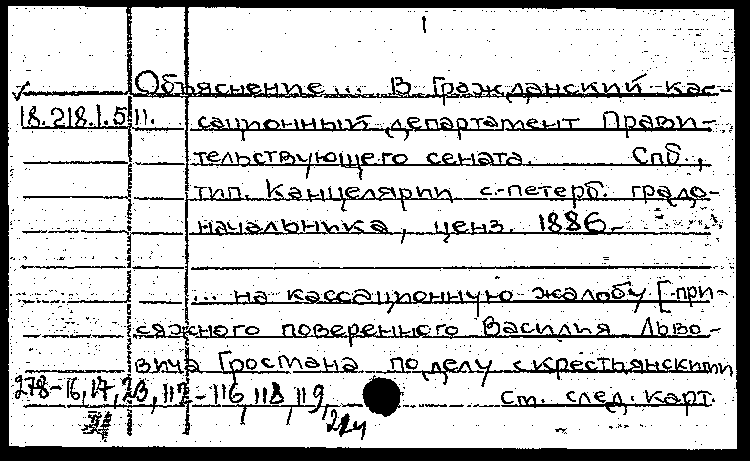 1
Объяснение... В Гражданский кас-
18.218.1.511. сационный департамент Прави-
тельствующего сената. Спб.,
тип. Канцелярии с.-петерб. градо-
начальника, ценз. 1886.
... на кассационную жалобу [при-
сяжного поверенного Василия Льво-
вича Гростана по делу с крестьянскими
278-16, 17, 23, 112-116, 118, 119, См. след. карт.